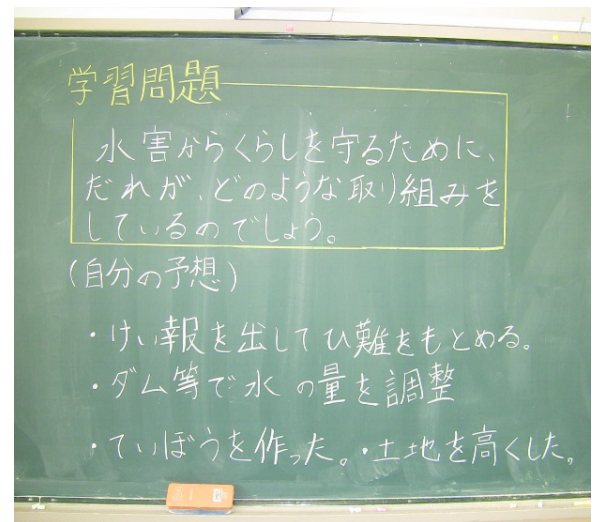 学習問題
水害からくらしを守るために、
だれが、どのような取り組みを
しているのでしょう。
(自分の予想)
・けい報を出してひ難をもとめる。
・ダム等で水の量を調整
・ていぼうを作った。・土地を高くした。